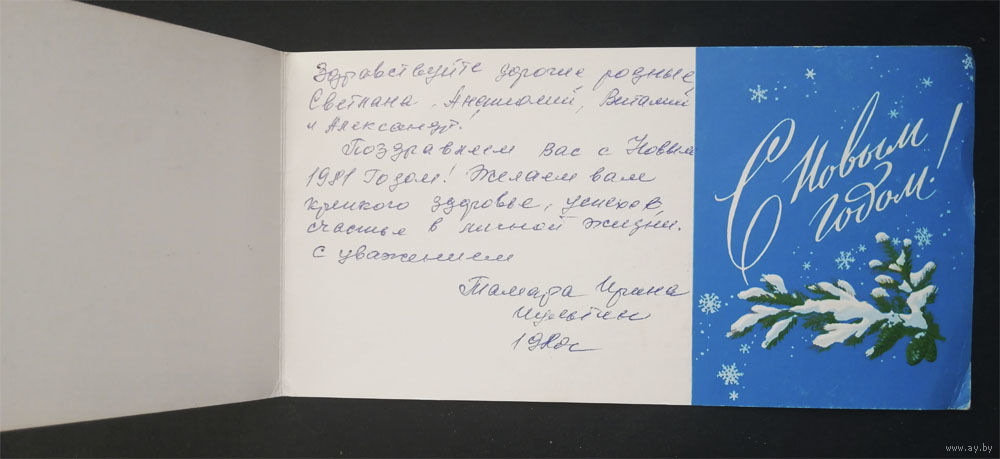 Здравствуйте дорогие родные
Светлана, Анатолий, Виталий
и Александр!
Поздравляем Вас с Новым
1981 Годом! Желаем вам
крепкого здоровье, успехов
счастье в личной жизни.
С уважением
Тамара Ирина
1980г
С Новым
годом!
www.ay.by